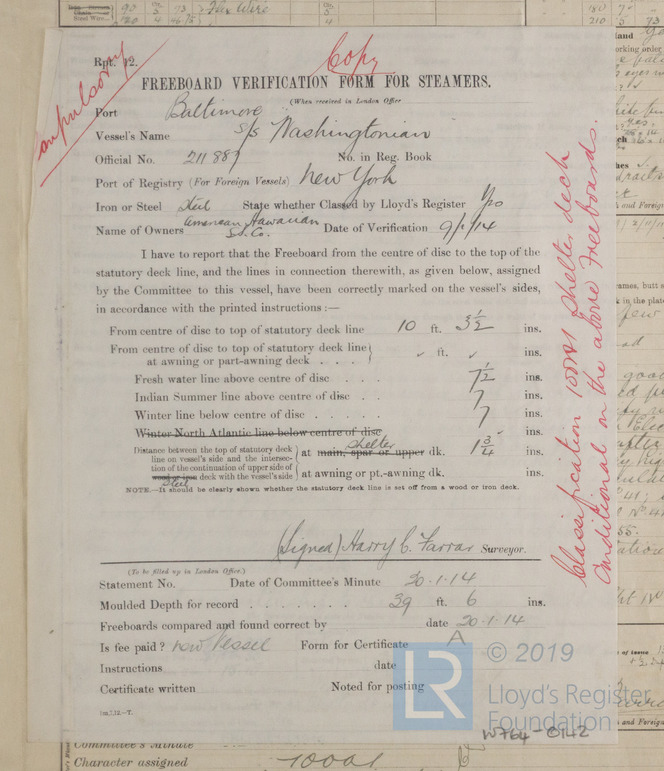 Copy
Rpt. 12.
FREEBOARD VERIFICATION FORM FOR STEAMERS.
(When received in London Office
Port Baltimore
Vessel's Name S/S Washingtonian
Official No. 211889 No. in Reg. Book
Port of Registry (For Foreign Vessels) New York
Iron or Steel Steel State whether Classed by Lloyd's Register Yes
Name of Owners American Hawaiian S.S. Co. Date of Verification 9/1/14
I have to report that the Freeboard from the centre of disc to the top of the
statutory deck line, and the lines in connection therewith, as given below, assigned
by the Committee to this vessel, have been correctly marked on the vessel's sides,
in accordance with the printed instructions :—
From centre of disc to top of statutory deck line 10 ft. 3½ ins.
From centre of disc to top of statutory deck line
at awning or part-awning deck . . . ft. ins.
Fresh water line above centre of disc . . . 7½ ins.
Indian Summer line above centre of disc . . . 7 ins.
Winter line below centre of disc . . . . . 7 ins.
Winter North Atlantic line below centre of disc - ins.
Distance between the top of statutory deck
line on vessel's side and the intersec-
tion of the continuation of upper side of
wood or iron Steel deck with the vessel's side
at main, spar or upper shelter dk. 1¾ ins.
at awning or pt.-awning dk. ins.
NOTE.—It should be clearly shown whether the statutory deck line is set off from a wood or iron deck.
(Signed) Harry C. Farrar Surveyor.
(To be filled up in London Office.)
Statement No. Date of Committee's Minute 20.1.14
Moulded Depth for record . . . . 39 ft. 6 ins.
Freeboards compared and found correct by date 20.1.14
Is fee paid? New Vessel Form for Certificate A
Instructions date
Certificate written Noted for posting
Classification 100A1 Shelter deck
Conditional on the above Freeboards.
LR
© 2019
Lloyd's Register
Foundation
W764-0142
Committee's Minute
Character assigned 100A1